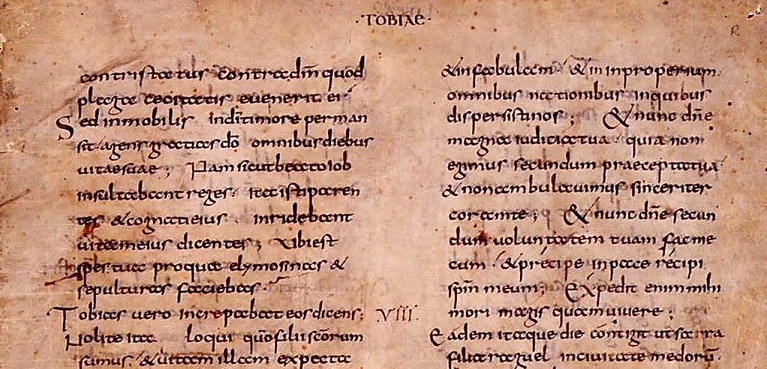 ·TOBIAE·
contristatus contra dm̄ quod
plaga cecitatis evenerit ei
Sed inmobilis in dī timore perman
sit· agens gratias dō omnibus diebus
vitae suae; Nam sicut beato iob
insultabant reges· ita isti paren
tes & cognati eius· inridebant
vitam eius dicentes; Ubi est
spes tua pro qua elymosinas &
sepulturas faciebas·
Tobias vero increpabat eos dicens; VIII·
Nolite ita loqui qm̄ filii scōrum
sumus· & vitam illam expecta
& in fabulam· & in inproperium·
omnibus nationibus in quibus
dispersisti nos; & nunc dn̄e
magna iudicia tua· quia non
egimus secundum praecepta tua·
& non ambulavimus sinceriter
coram te; & nunc dn̄e secun
dum voluntatem tuam fac me
cum· & precipe in pace recipi
spm̄ meum; Expedit enim mihi
mori magis quam vivere;
Eadem itaque die contigit ut sarra
filia raguel in civitate medorū·